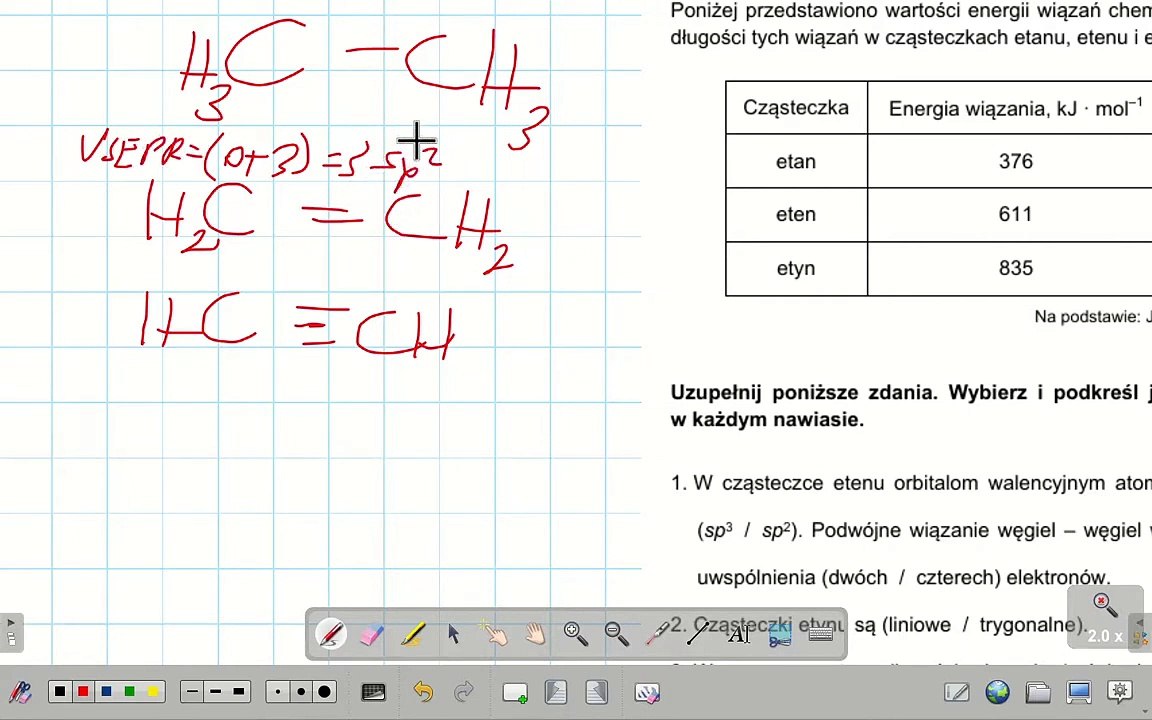 H3C - CH3
VSEPR=(0+3)=3-sp2
H2C = CH2
HC ≡ CH
Poniżej przedstawiono wartości energii wiązań chem
długości tych wiązań w cząsteczkach etanu, etenu i e
Cząsteczka Energia wiązania, kJ · mol–1
etan 376
eten 611
etyn 835
Na podstawie: J
Uzupełnij poniższe zdania. Wybierz i podkreśl j
w każdym nawiasie.
1. W cząsteczce etenu orbitalom walencyjnym atom
(sp3 / sp2). Podwójne wiązanie węgiel – węgiel w
uwspólnienia (dwóch / czterech) elektronów.
2. Cząsteczki etynu są (liniowe / trygonalne).
2.0 x